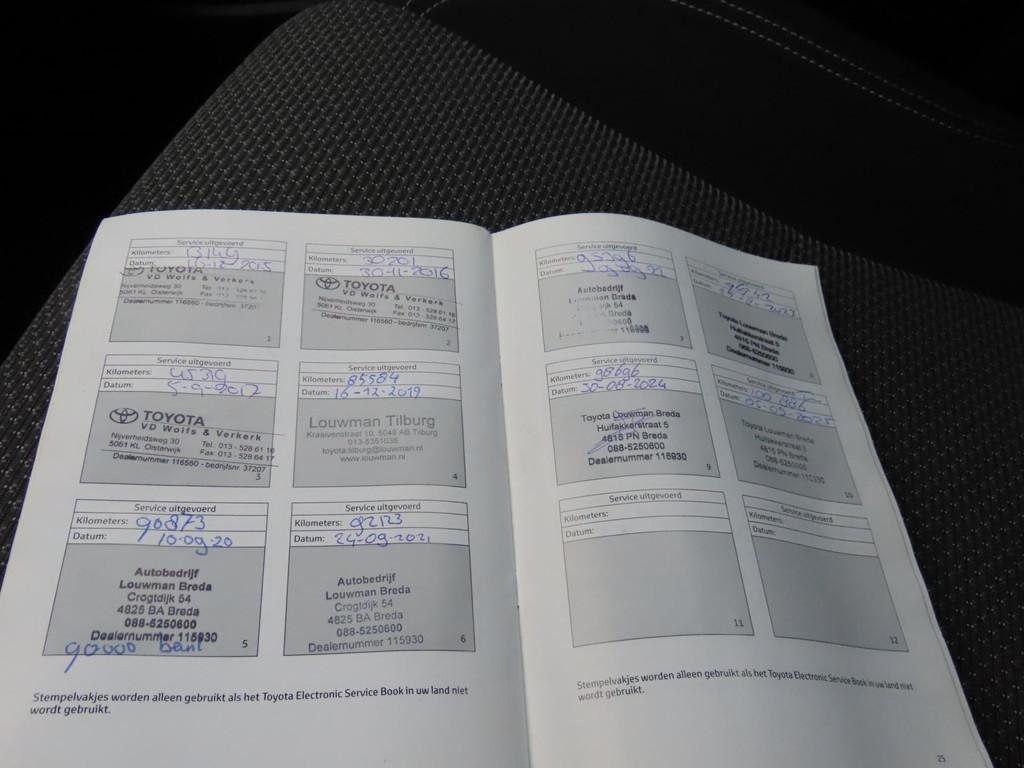 Service uitgevoerd
Kilometers: 13149
Datum: 16-12-2015
TOYOTA
VD Wolfs & Verkerk
Nijverheidsweg 30
5061 KL Oisterwijk
Tel. 013 - 528 61 16
Fax 013 - 528 64 17
Dealernummer 116560 - bedrijfsnr. 37207
1
Service uitgevoerd
Kilometers: 30201
Datum: 30-11-2016
TOYOTA
VD Wolfs & Verkerk
Nijverheidsweg 30
5061 KL Oisterwijk
Tel. 013 - 528 61 16
Fax 013 - 528 64 17
Dealernummer 116560 - bedrijfsnr. 37207
2
Service uitgevoerd
Kilometers:
Datum: 5-9-2017
TOYOTA
VD Wolfs & Verkerk
Nijverheidsweg 30
5061 KL Oisterwijk
Tel. 013 - 528 61 16
Fax 013 - 528 64 17
Dealernummer 116560 - bedrijfsnr. 37207
3
Service uitgevoerd
Kilometers: 85584
Datum: 16-12-2019
Louwman Tilburg
Kraaivenstraat 10, 5048 AB Tilburg
013-5351035
toyota.tilburg@louwman.nl
www.louwman.nl
4
Service uitgevoerd
Kilometers: 90873
Datum: 10-09-20
Autobedrijf
Louwman Breda
Crogtdijk 54
4825 BA Breda
088-5250600
Dealernummer 115930
90000 beurt
5
Service uitgevoerd
Kilometers: 92123
Datum: 24-09-2021
Autobedrijf
Louwman Breda
Crogtdijk 54
4825 BA Breda
088-5250600
Dealernummer 115930
6
Stempelvakjes worden alleen gebruikt als het Toyota Electronic Service Book in uw land niet
wordt gebruikt.
Service uitgevoerd
Kilometers: 95396
Datum:
Autobedrijf
Louwman Breda
54
Breda
Dealernummer 115930
7
Service uitgevoerd
Kilometers:
Datum:
Toyota Louwman Breda
Huifakkerstraat 5
4815 PN Breda
088-5250600
Dealernummer 115930
8
Service uitgevoerd
Kilometers: 98696
Datum: 30-08-2024
Toyota Louwman Breda
Huifakkerstraat 5
4815 PN Breda
088-5250600
Dealernummer 115930
9
Service uitgevoerd
Kilometers:
Datum: 05-09-2025
Toyota Louwman Breda
Huifakkerstraat 5
4815 PN Breda
088-5250600
Dealernummer 115930
10
Service uitgevoerd
Kilometers:
Datum:
11
Service uitgevoerd
Kilometers:
Datum:
12
Stempelvakjes worden alleen gebruikt als het Toyota Electronic Service Book in uw land niet
wordt gebruikt.
25